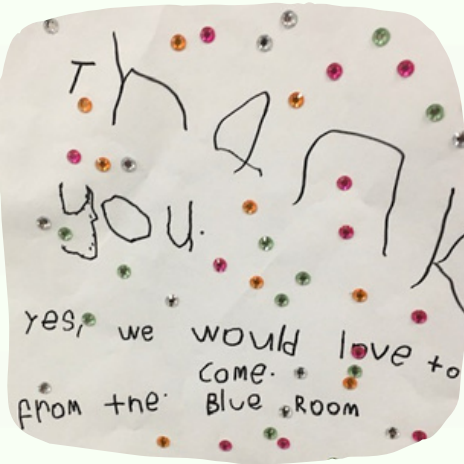 Thank
you.
yes, we would love to
come.
from the Blue Room